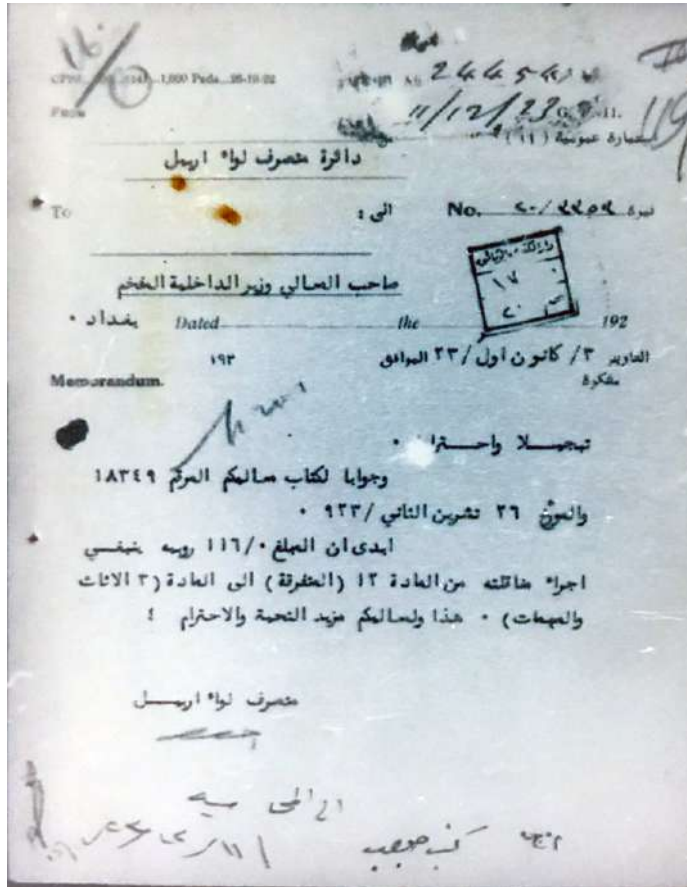 1,000 Pads. 26-10-22
24454
11/12/23
G. 11.
استمارة عمومية (١١)
From
دائرة متصرف لواء اربيل
To الى : No. نمرة
صاحب المعالي وزير الداخلية الفخم
Dated the 192
بغداد ٠
٣/ كانون اول/ ٢٣ الموافق
١٩٣
Memorandum. مفكرة
تبجيلا واحتراما ٠
وجوابا لكتاب معاليكم المرقم ١٨٣٤٩
والمورخ ٢٦ تشرين الثاني /٩٢٣ ٠
ابدى ان المبلغ ٠/١١٦ روبيه ينبغي
اجراء مناقلته من المادة ١٢ (المتفرقة) الى المادة (٣ الاثاث
والمهمات) ٠ هذا ولمعاليكم مزيد التحية والاحترام ؛
متصرف لواء اربيل
الى المحاسبه